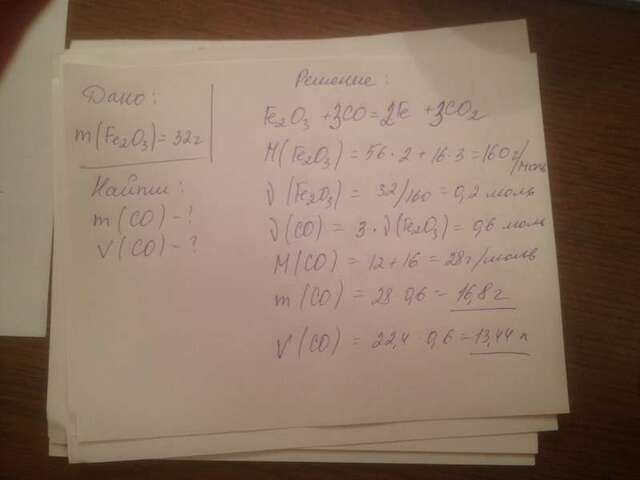 Дано:
m(Fe₂O₃)=32г
Найти:
m(CO)-?
V(CO)-?
Решение:
Fe₂O₃ +3CO=2Fe +3CO₂
M(Fe₂O₃)=56·2+16·3=160г/моль
ν(Fe₂O₃)= 32/160=0,2 моль
ν(CO)= 3·ν(Fe₂O₃)=0,6 моль
M(CO)=12+16=28г/моль
m(CO)=28·0,6=16,8г
V(CO)=22,4·0,6=13,44л